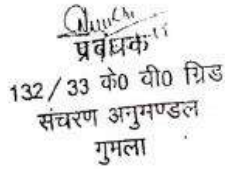 प्रबंधक
132/33 के० वी० ग्रिड
संचरण अनुमण्डल
गुमला